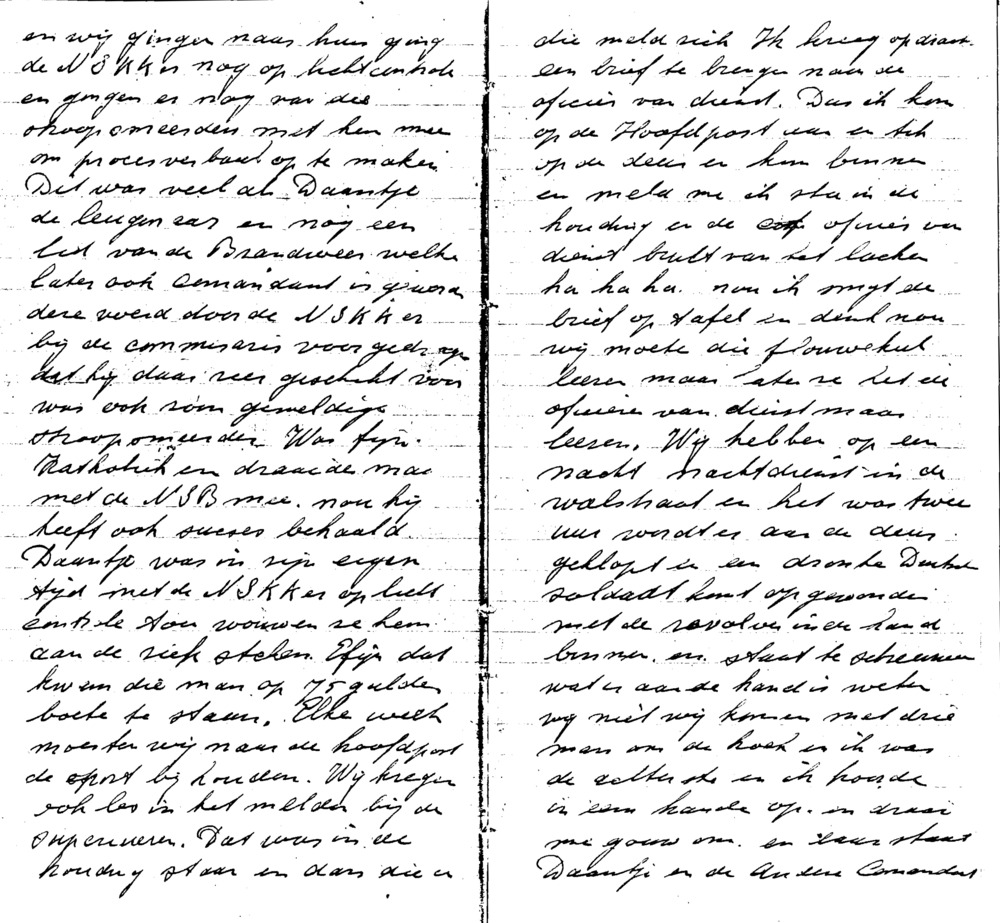 en wij gingen naar huis ging
de NSKKer nog op lichtcontrole
en gingen er nog van die
stroopsmeerders met hem mee
om procesverbaal op te maken
Dit was veel al Daantje
de leugenaar en nog een
lid van de Brandweer welke
later ook Comandant is geworde
deze werd door de NSKKer
bij de commisaris voorgedragen
dat hij daar zeer geschikt voor
was ook zoon geweldige
stroopsmeerder. Was fijn
Katholiek en draaide mae
met de NSB mee. nou hij
heeft ook sucses behaald.
Daantje was in zijn eigen
tijd met de NSKKer op licht
controle toen wouwen ze hem
aan de riek steken. Efijn dat
kwam die man op 75 gulden
boete te staan. Elke week
moesten wij naar de hoofdpost
de sport bij houden. Wij kregen
ook les in het melden bij de
superieuren. Dat was in de
houding staan en dan die er
die meld zich Ik kreeg opdracht
een brief te brengen naar de
oficier van dienst. Dus ik kom
op de Hoofdpost aan en tik
op de deur en kom binnen
en meld me ik sta in de
houding en de oficier van
dienst brult van het lachen
ha ha ha. nou ik smijt de
brief op tafel en denk nou
wij moete die flouwekul
leeren maar laten ze het de
oficieren van dienst maar
leeren. Wij hebben op een
nacht nachtdienst in de
walstraat en het was twee
uur wordt er aan de deur
geklopt en een dronke Duitse
soldaadt komt opgewonden
met de revolver in de hand
binnen. en staat te schreeuwen
wat er aan de hand is weten
wij niet wij komen met drie
man om de hoek en ik was
de zelterste en ik hoorde
in eem hande op. en draai
me gouw om. en daar staat
Daantje en de Andere Comandant